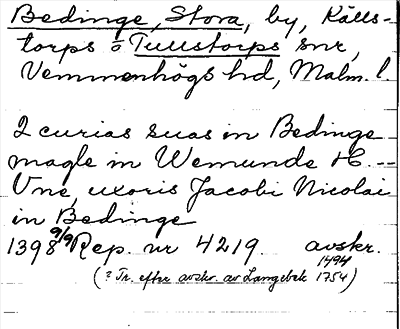 Bedinge, Stora, by, Källs-
torps o Tullstorps snr,
Vemmenhögs hd, Malm. l.
2 curias suas in Bedinge
magle in Wemunde H. --
Vne, uxoris Jacobi Nicolai
in Bedinge
1398 9/9 Rep. nr 4219. avskr.
1494
(? Tr. efter avskr. av Langebek 1754)